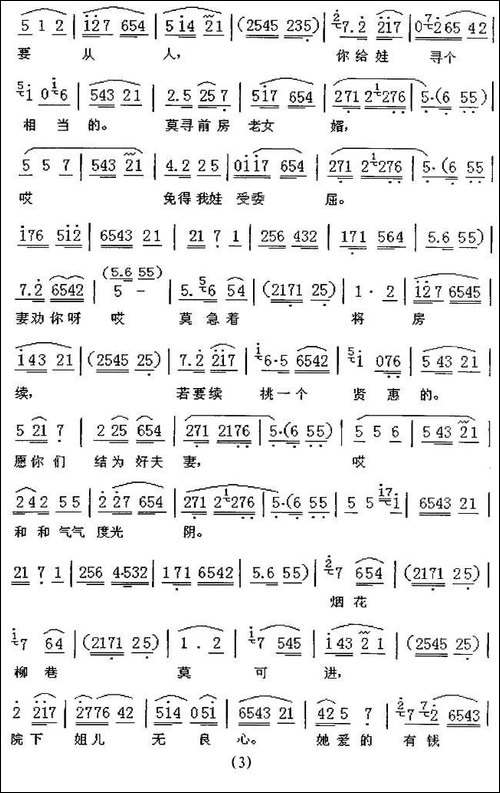 5 1 2 | i27 654 | 5 i4 21 | (2545 235) | 7.2 2i7 | 0 265 42 |
要 从 人， 你给娃 寻个
i 0 i6 | 543 21 | 2.5 25 7 | 5i7 654 | 271 21276 | 5·(6 55) |
相当的。 莫寻前房 老女 婿，
5 5 7 | 543 21 | 4.2 2 5 | 0i i7 654 | 271 21276 | 5·(6 55 |
哎 免得我娃 受委 屈。
i76 5i2 | 6543 21 | 21 7 1 | 256 432 | 171 564 | 5.6 55) |
(5.6 55)
7.2 6542 | 5 － | 5. 6 54 | (2171 25) | 1 · 2 | i27 6545 |
妻劝你呀 哎 莫急着 将房
i43 21 | (2545 25) | 7.2 2i7 | 6·5 6542 | i 076 | 5 43 21 |
续， 若要续 挑一个 贤惠的。
5 21 7 | 2 25 654 | 271 2176 | 5·(6 55) | 5 5 6 | 5 43 21 |
愿你们 结为好夫 妻， 哎
242 55 | 2 27 654 | 271 21276 | 5·(6 55 | 5 5 i | 6543 21 |
和和气气 度光 阴。
21 7 1 | 256 4·532 | 171 6542 | 5.6 55) | 7 654 | (2171 25) |
烟花
7 64 | (2171 25) | 1 . 2 | 7 545 | i43 2 1 | (2545 25) |
柳巷 莫 可 进，
2 2i7 | 2776 42 | 5i4 05i | 6543 21 | 42 5 7 | 7 2 6543 |
院下 姐儿 无良心。 她爱的 有钱
(3)